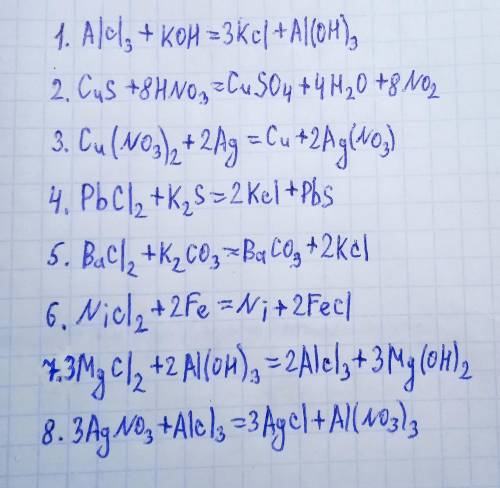 1. AlCl₃ + KOH = 3Kcl + Al(OH)₃
2. CuS + 8HNO₃ = CuSO₄ + 4H₂O + 8NO₂
3. Cu(NO₃)₂ + 2Ag = Cu + 2Ag(NO₃)
4. PbCl₂ + K₂S = 2Kcl + PbS
5. BaCl₂ + K₂CO₃ = BaCO₃ + 2Kcl
6. Nicl₂ + 2Fe = Ni + 2Fecl
7. 3MgCl₂ + 2Al(OH)₃ = 2Alcl₃ + 3Mg(OH)₂
8. 3AgNO₃ + Alcl₃ = 3Agcl + Al(NO₃)₃